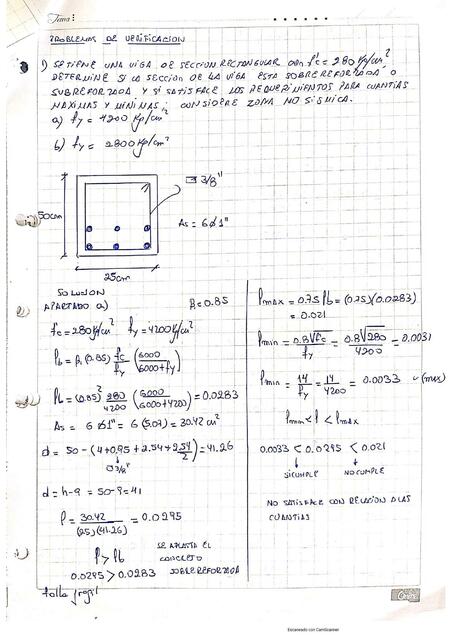 Tema:
PROBLEMAS DE VERIFICACION
1) SE TIENE UNA VIGA DE SECCION RECTANGULAR CON f'c = 280 Kg/cm²,
DETERMINE SI LA SECCION DE LA VIGA ESTA SOBREREFORZADA O
SUBREFORZADA, Y SI SATISFACE LOS REQUERIMIENTOS PARA CUANTIAS
MAXIMAS Y MINIMAS; CONSIDERE ZONA NO SISMICA.
a) fy = 4200 Kg/cm²
b) fy = 2800 Kg/cm²
3/8"
50cm
As = 6Ø1"
25cm
SOLUCION
APARTADO a) β=0.85
f'c = 280 Kg/cm² fy = 4200 Kg/cm²
ρb = β (0.85) f'c/fy (6000/6000+fy)
ρb = (0.85)² 280/4200 (6000/6000+4200) = 0.0283
As = 6Ø1" = 6(5.07) = 30.42 cm²
d = 50 - (4+0.95 + 2.54 + 2.54/2) = 41.26
3/8"
d = h-9 = 50-9 = 41
ρ = 30.42/(25)(41.26) = 0.0295
ρ > ρb
0.0295 > 0.0283
SE APLASTA EL
CONCRETO
SOBREREFORZADA
falla fragil
ρmax = 0.75 ρb = (0.75)(0.0283)
= 0.021
ρmin = 0.8√f'c/fy = 0.8√280/4200 = 0.0031
ρmin = 14/fy = 14/4200 = 0.0033 (max)
ρmin < ρ < ρmax
0.0033 < 0.0295 < 0.021
SI CUMPLE NO CUMPLE
NO SATISFACE CON RELACION A LAS
CUANTIAS
Escaneado con CamScanner